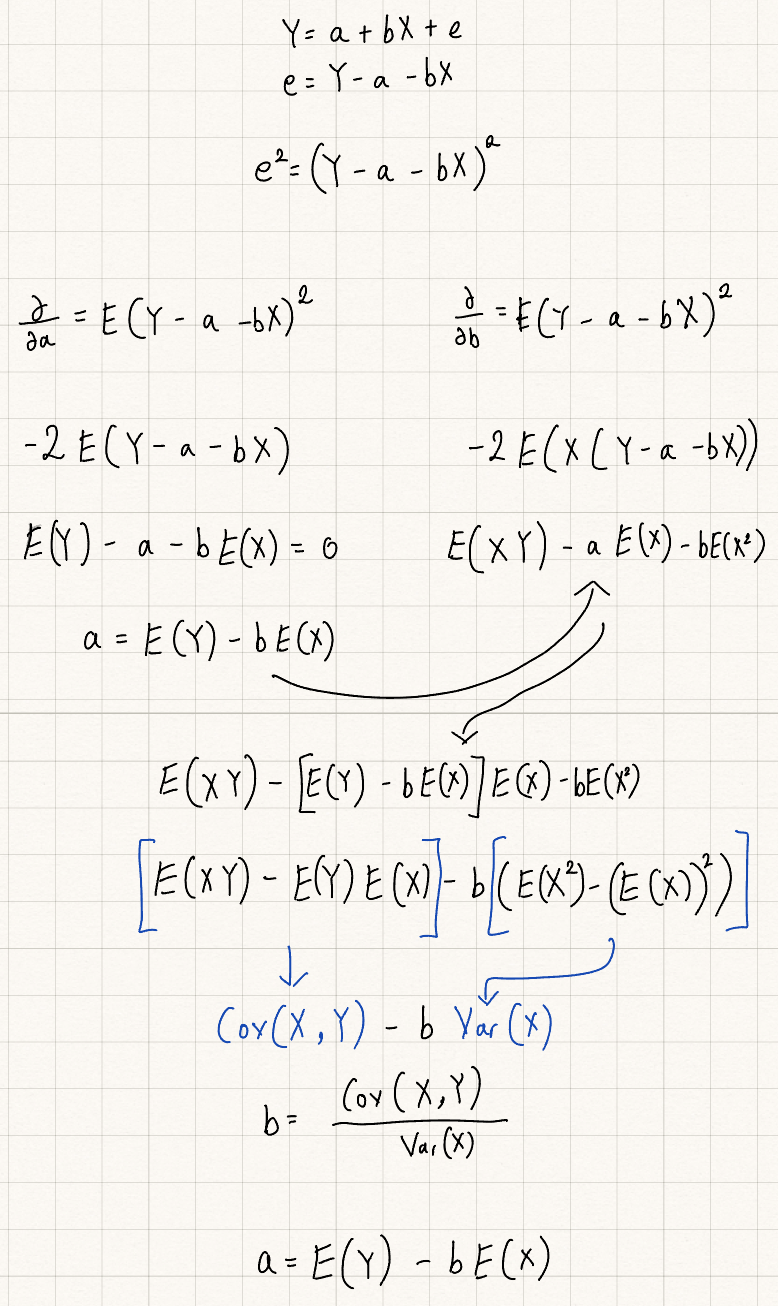 Y = a + bX + e
e = Y - a - bX
e² = (Y - a - bX)²
∂/∂a = E(Y - a - bX)²
∂/∂b = E(Y - a - bX)²
-2 E(Y - a - bX)
-2 E(X(Y - a - bX))
E(Y) - a - bE(X) = 0
E(XY) - a E(X) - bE(X²)
a = E(Y) - bE(X)
E(XY) - [E(Y) - bE(X)]E(X) - bE(X²)
[E(XY) - E(Y)E(X)] - b[(E(X²) - (E(X))²)]
Cov(X,Y) - b Var(X)
b = Cov(X,Y) / Var(X)
a = E(Y) - bE(X)